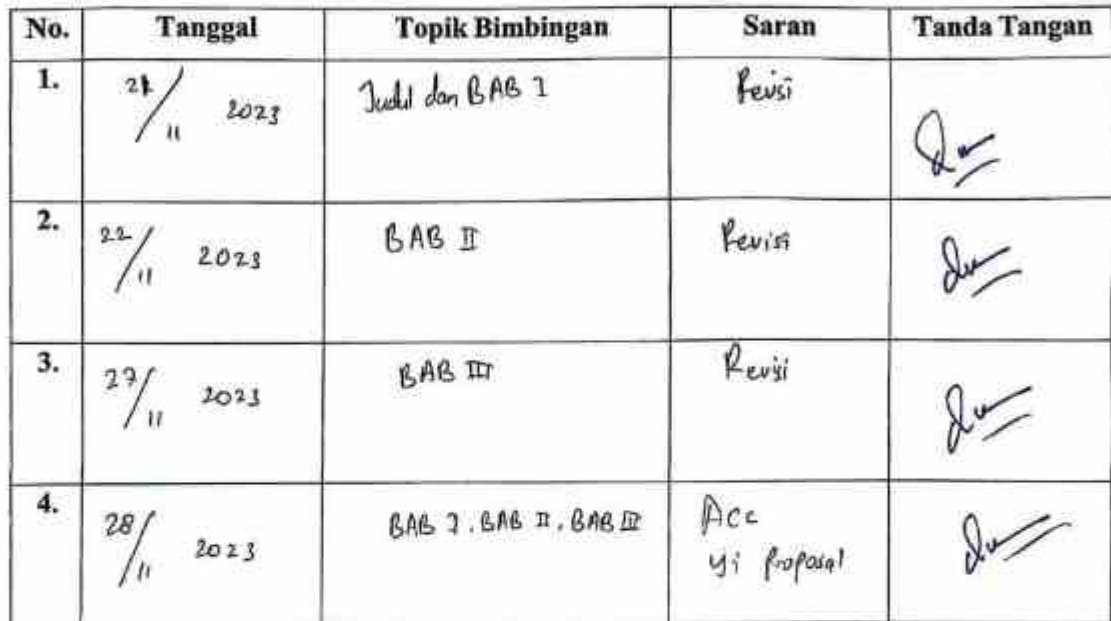 No. Tanggal Topik Bimbingan Saran Tanda Tangan
1. 21/11 2023 Judul dan BAB I Revisi
2. 22/11 2023 BAB II Revisi
3. 27/11 2023 BAB III Revisi
4. 28/11 2023 BAB I, BAB II, BAB III Acc
uji proposal